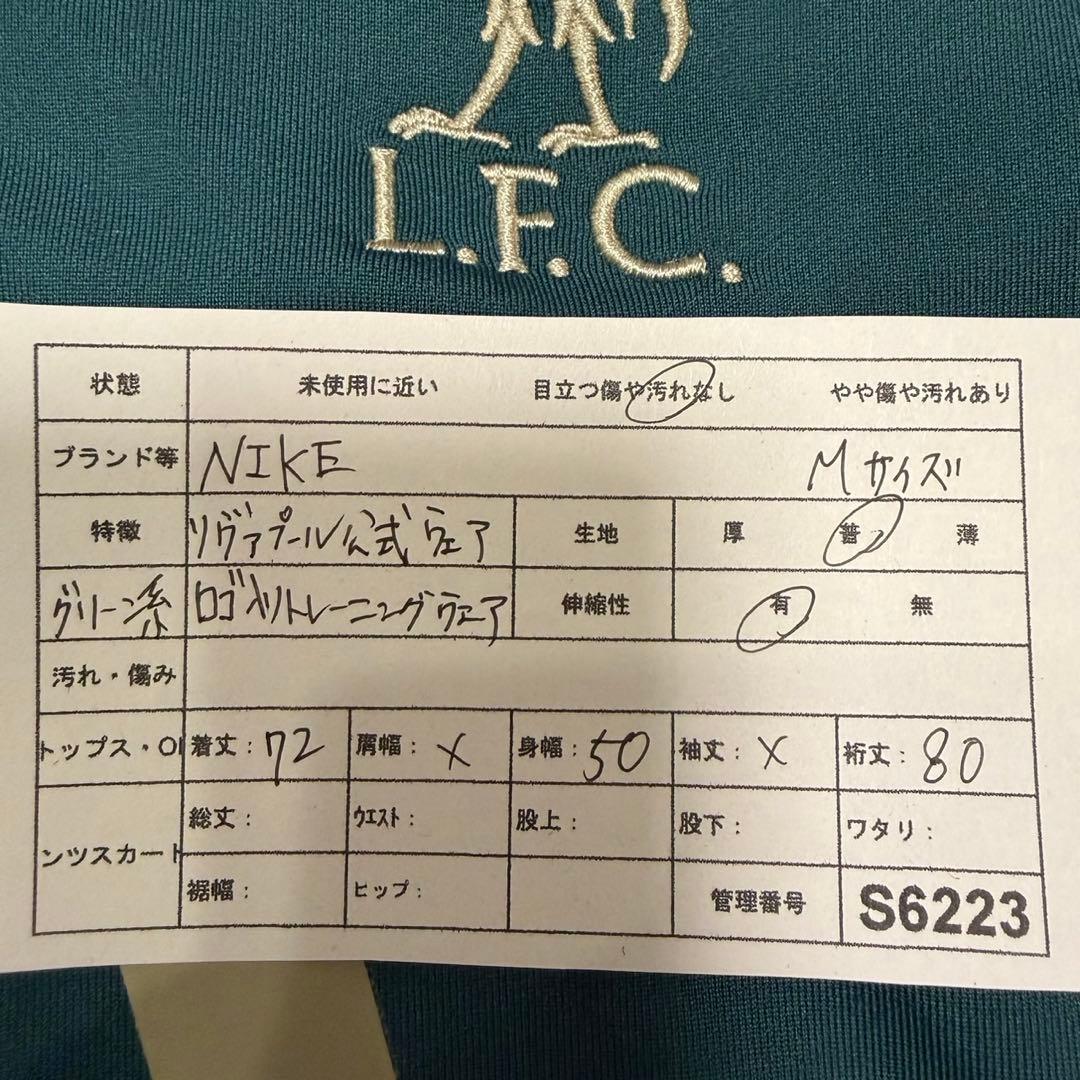 L.F.C.
状態 未使用に近い 目立つ傷や汚れなし やや傷や汚れあり
ブランド等 NIKE Mサイズ
特徴 リヴァプール公式ウェア 生地 厚 普 薄
グリーン系 ロゴ入りトレーニングウェア 伸縮性 有 無
汚れ・傷み
トップス・O 着丈: 72 肩幅: X 身幅: 50 袖丈: X 裄丈: 80
総丈: ウエスト: 股上: 股下: ワタリ:
ンツスカート
裾幅: ヒップ: 管理番号 S6223